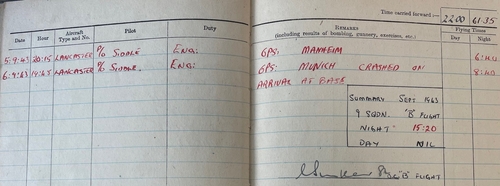 Time carried forward:— 22.00 61.35
Date Hour Aircraft Type and No. Pilot Duty REMARKS (including results of bombing, gunnery, exercises, etc.) Flying Times Day Night
5.9.43 20:15 LANCASTER P/O SIDDLE ENG: OPS: MANHEIM
6.9.43 LANCASTER P/O SIDDLE. ENG: OPS: MUNICH CRASHED ON
ARRIVAL AT BASE
SUMMARY SEPT: 1943
9 SQDN. 'B' FLIGHT
NIGHT 15:20
DAY NIL
'B' FLIGHT